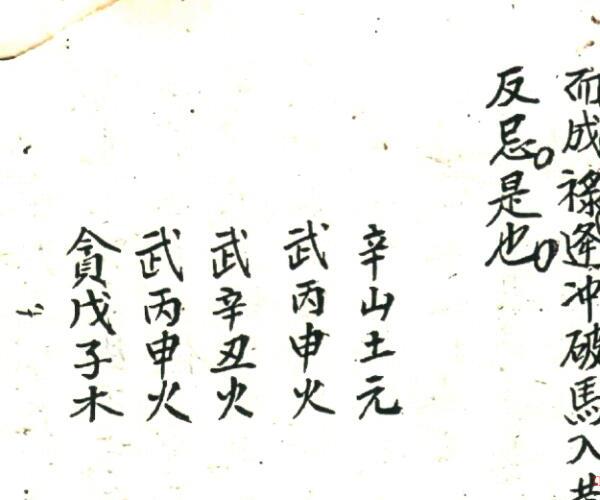 而成祿逢冲破馬入
反忌。是也。
辛山土元
武丙申火
武辛丑火
武丙申火
貪戊子木